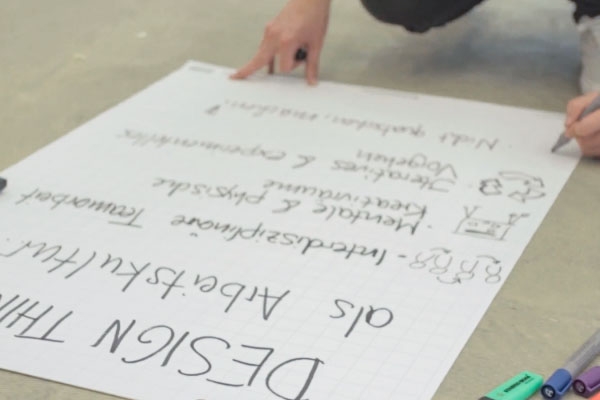 DESIGN THIN
als Arbeitskultur.
- Interdisziplinäre Teamarbeit
- Mentale & physische
Kreativräume
- Iteratives & experimentelles
Vorgehen
- Nicht quatschen, machen!